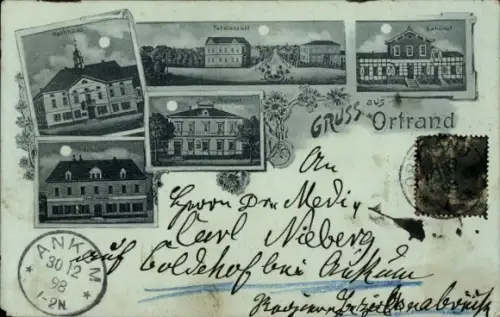 Rathhaus
Totalansicht
Bahnhof
GRUSS aus
Ortrand
An
Herrn Dr. Medi-
Carl Nieberg
auf Coldehof bei Ankum
Osnabrück
ANKUM
30 12
98
1-2N